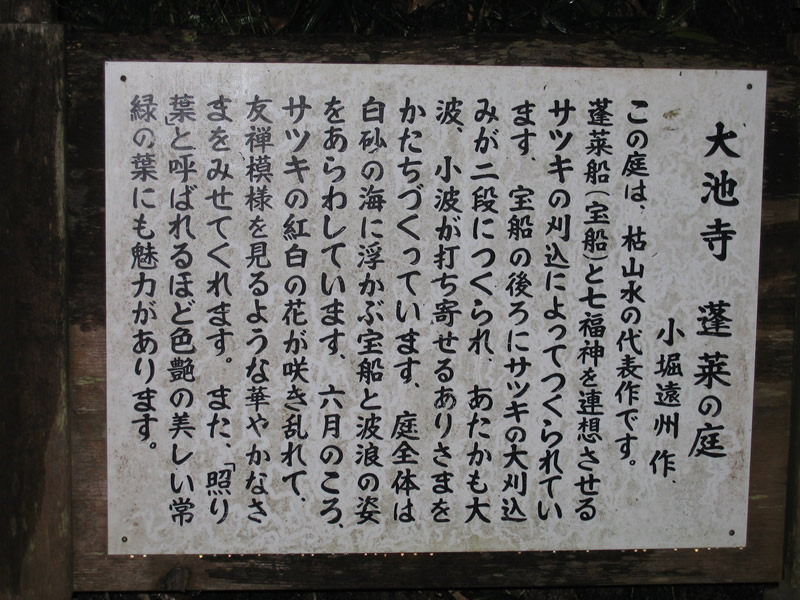 大池寺　蓬莱の庭
小堀遠州 作、
この庭は、枯山水の代表作です。
蓬莱船(宝船)と七福神を連想させる
サツキの刈込によってつくられてい
ます、宝船の後ろにサツキの大刈込
みが二段につくられ、あたかも大
波、小波が打ち寄せるありさまを
かたちづくっています、庭全体は
白砂の海に浮かぶ宝船と波浪の姿
をあらわしています、六月のころ、
サツキの紅白の花が咲き乱れて、
友禅模様を見るような華やかなさ
まをみせてくれます。また、「照り
葉」と呼ばれるほど色艶の美しい常
緑の葉にも魅力があります。